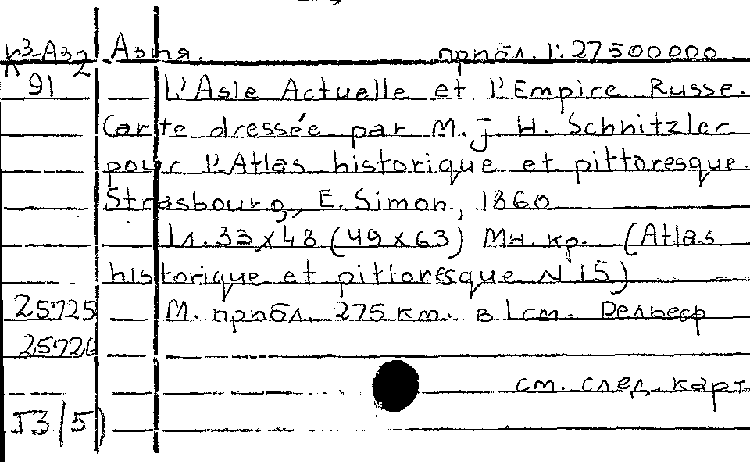 К3-Аз2 Азия. прибл. 1:27500000
91 L'Asie Actuelle et l'Empire Russe.
Carte dressée par M. J H. Schnitzler
pour l'Atlas historique et pittoresque.
Strasbourg, E. Simon, 1860
1л. 33x48 (49x63) Мн. кр. (Atlas
historique et pittoresque N 15)
25725 М. прибл. 275 км. в 1 см. Рельеф
25726
см. след. карт
I3/5)